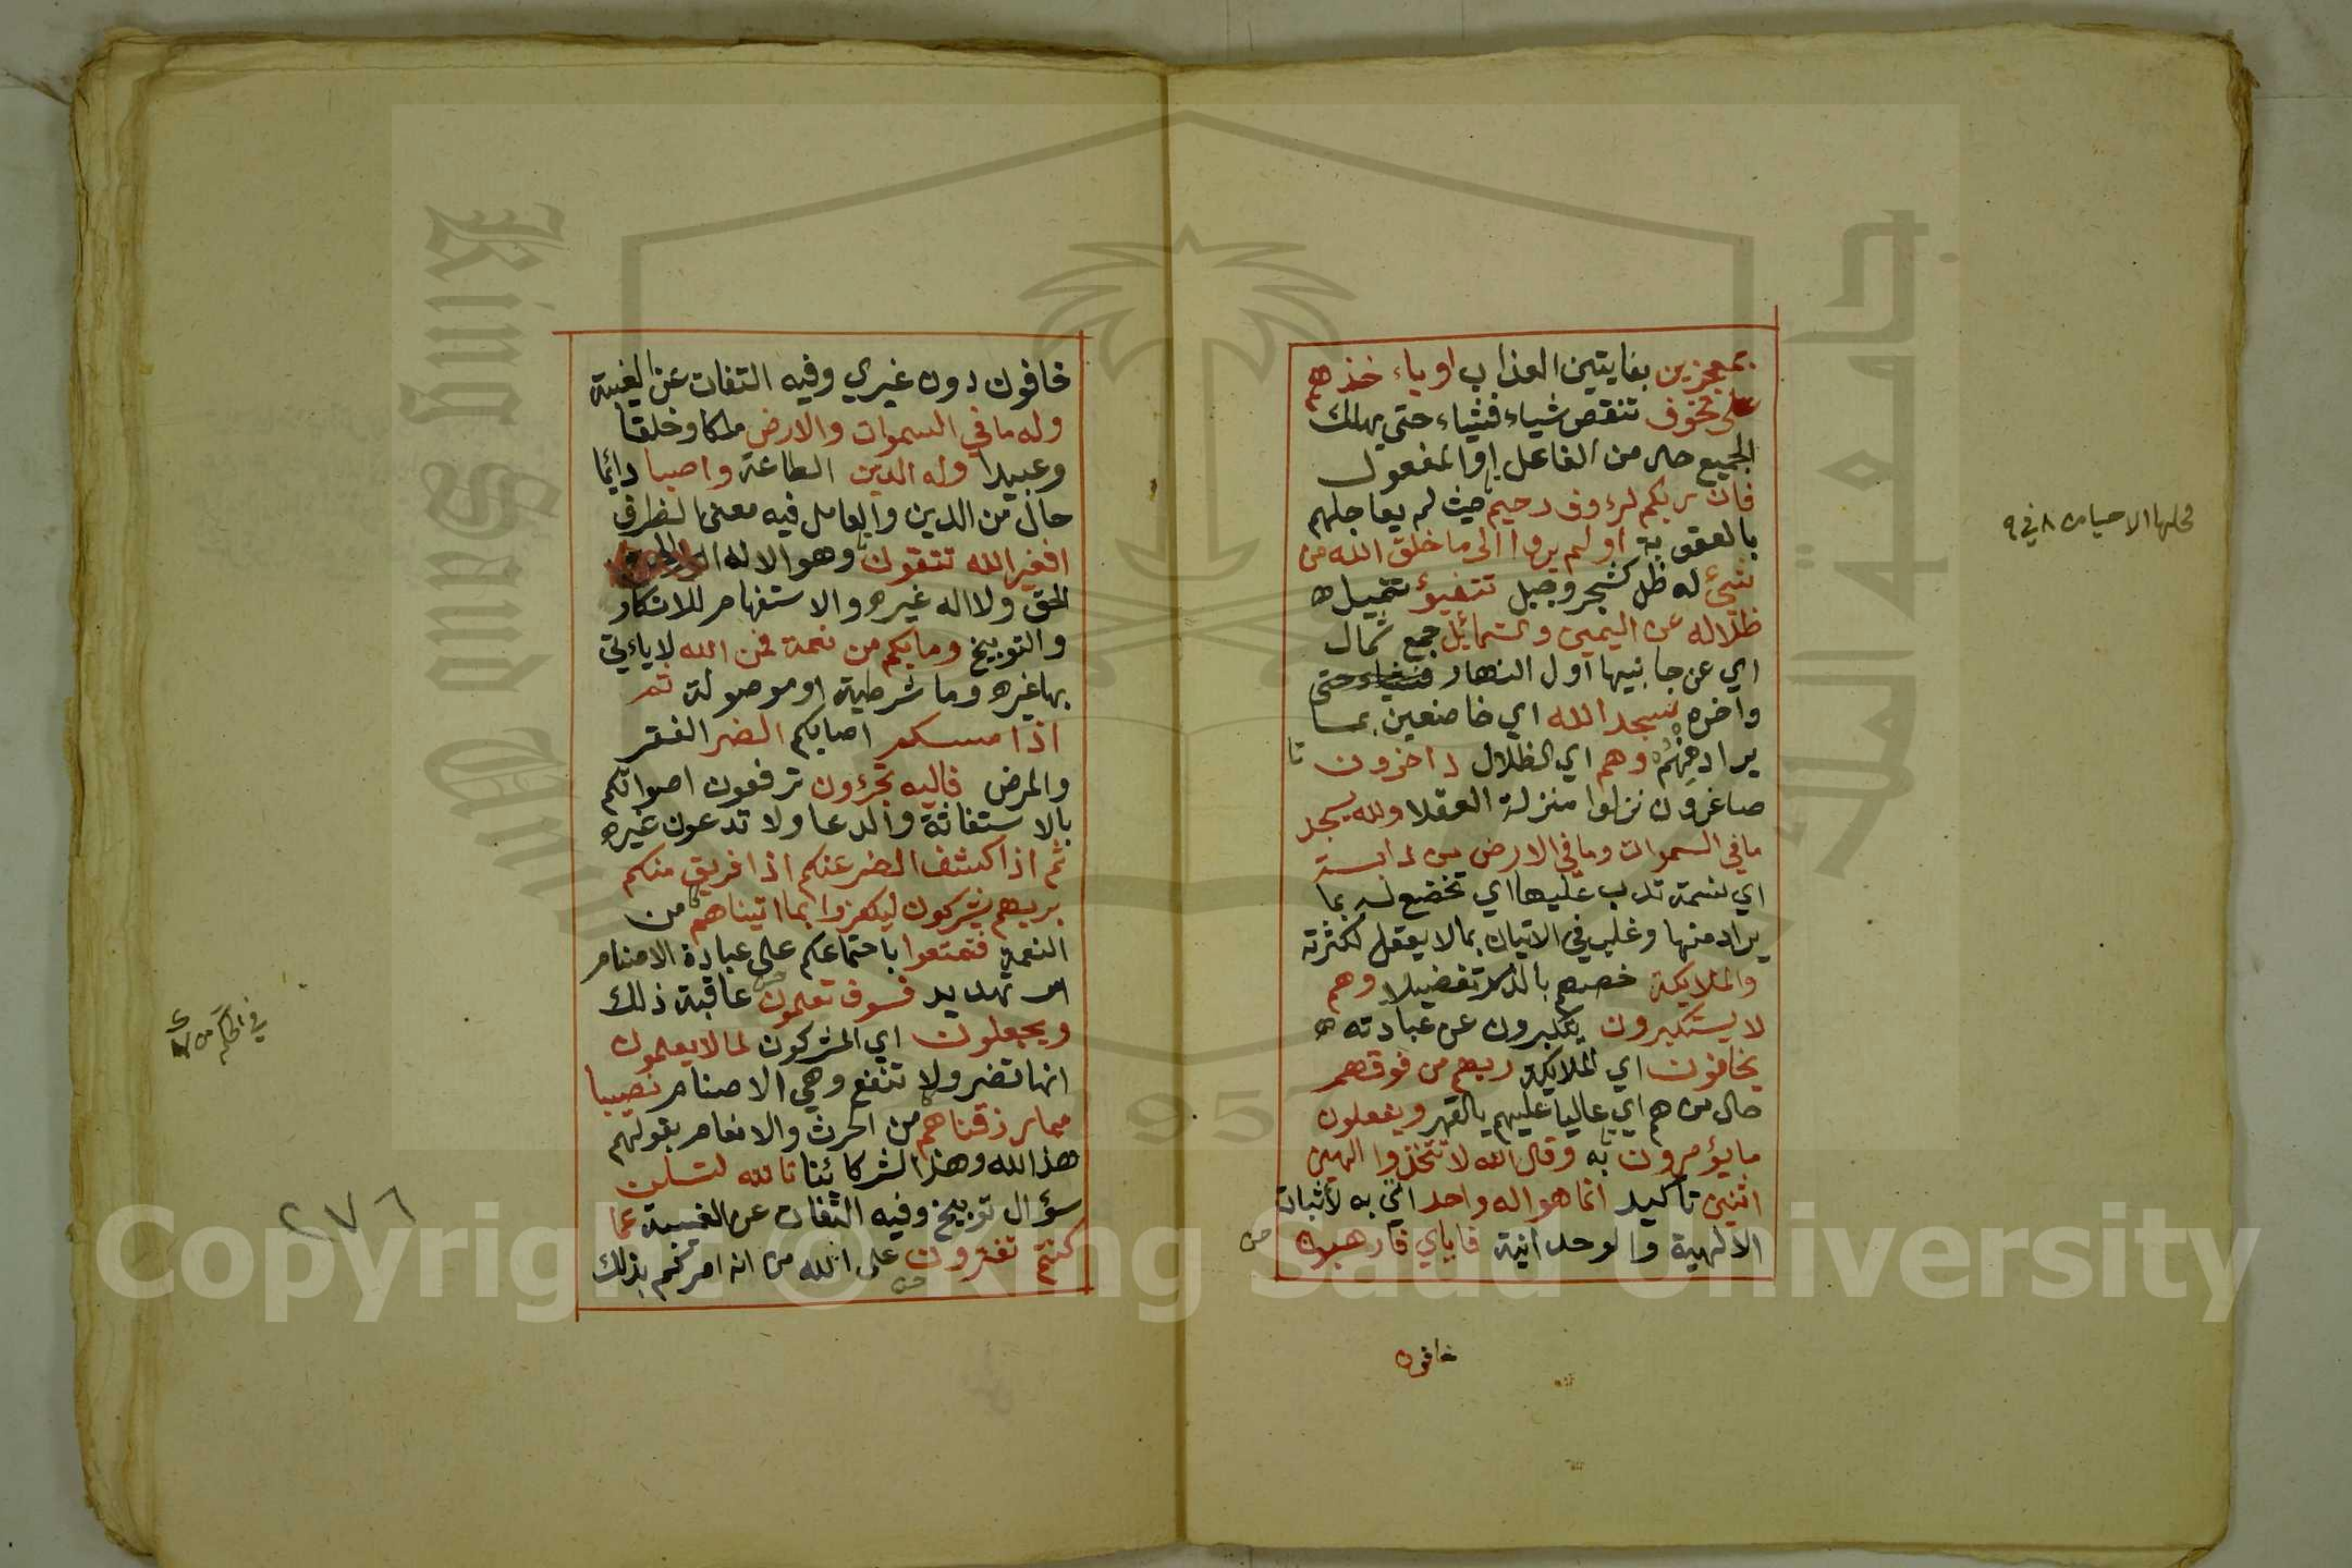 بمعجزين بفايتين العذاب او ياء خذهم
على تخوف تنقص شياء فشياء حتى يهلك
الجميع حال من الفاعل او المفعول
فان ربكم لرءوف رحيم حيث لم يعاجلهم
بالعقوبة او لم يروا الى ما خلق الله من
شيئ له ظل كشجر وجبل تتفيؤ تتميل
ظلاله عن اليمين والشمائل جمع شمال
اي عن جانبيها اول النهار
واخره سجد الله اي خاضعين بما
يراد منهم وهم اي الظلال داخرون
صاغرون نزلوا منزلة العقلا ولله يسجد
ما في السموات وما في الارض من دابة
اي نسمة تدب عليها اي تخضع له بما
يراد منها وغلب في الاتيان بما لا يعقل لكثرته
والملايكة خصهم بالذكر تفضيلا وهم
لا يستكبرون يتكبرون عن عبادته
يخافون اي الملايكة ربهم من فوقهم
حال من هم اي عاليا عليهم بالقهر ويفعلون
ما يؤمرون به وقال الله لا تتخذوا الهين
اثنين تاكيد انما هو اله واحد اتى به لاثبات
الالهية والوحدانية فاياي فارهبون
خافون
خافون دون غيري وفيه التفات عن الغيبة
وله ما في السموات والارض ملكا وخلقا
وعبيدا وله الدين الطاعة واصبا دائما
حال من الدين والعامل فيه معنى الظرف
افغير الله تتقون وهو الاله
الحق ولا اله غيره والاستفهام للانكار
والتوبيخ وما بكم من نعمة فمن الله لا ياءتي
بها غيره وما شرطية او موصولة ثم
اذا مسكم اصابكم الضر الفقر
والمرض فاليه تجرءون ترفعون اصواتكم
بالاستغاثة والدعا ولا تدعون غيره
ثم اذا كشف الضر عنكم اذا فريق منكم
بربهم يشركون ليكفروا بما اتيناهم من
النعمة فتمتعوا باجتماعكم على عبادة الاصنام
امر تهديد فسوف تعلمون عاقبة ذلك
ويجعلون اي المشركون لما لا يعلمون
انها تضر ولا تنفع وهي الاصنام نصيبا
مما رزقناهم من الحرث والانعام بقولهم
هذا لله وهذا لشركائنا تا لله لتسلن
سؤال توبيخ وفيه التفات عن الغيبة عما
كنتم تفترون على الله من انه امركم بذلك
٢٧٦
جامعة الملك
King Saud University
1957
Copyright © King Saud University